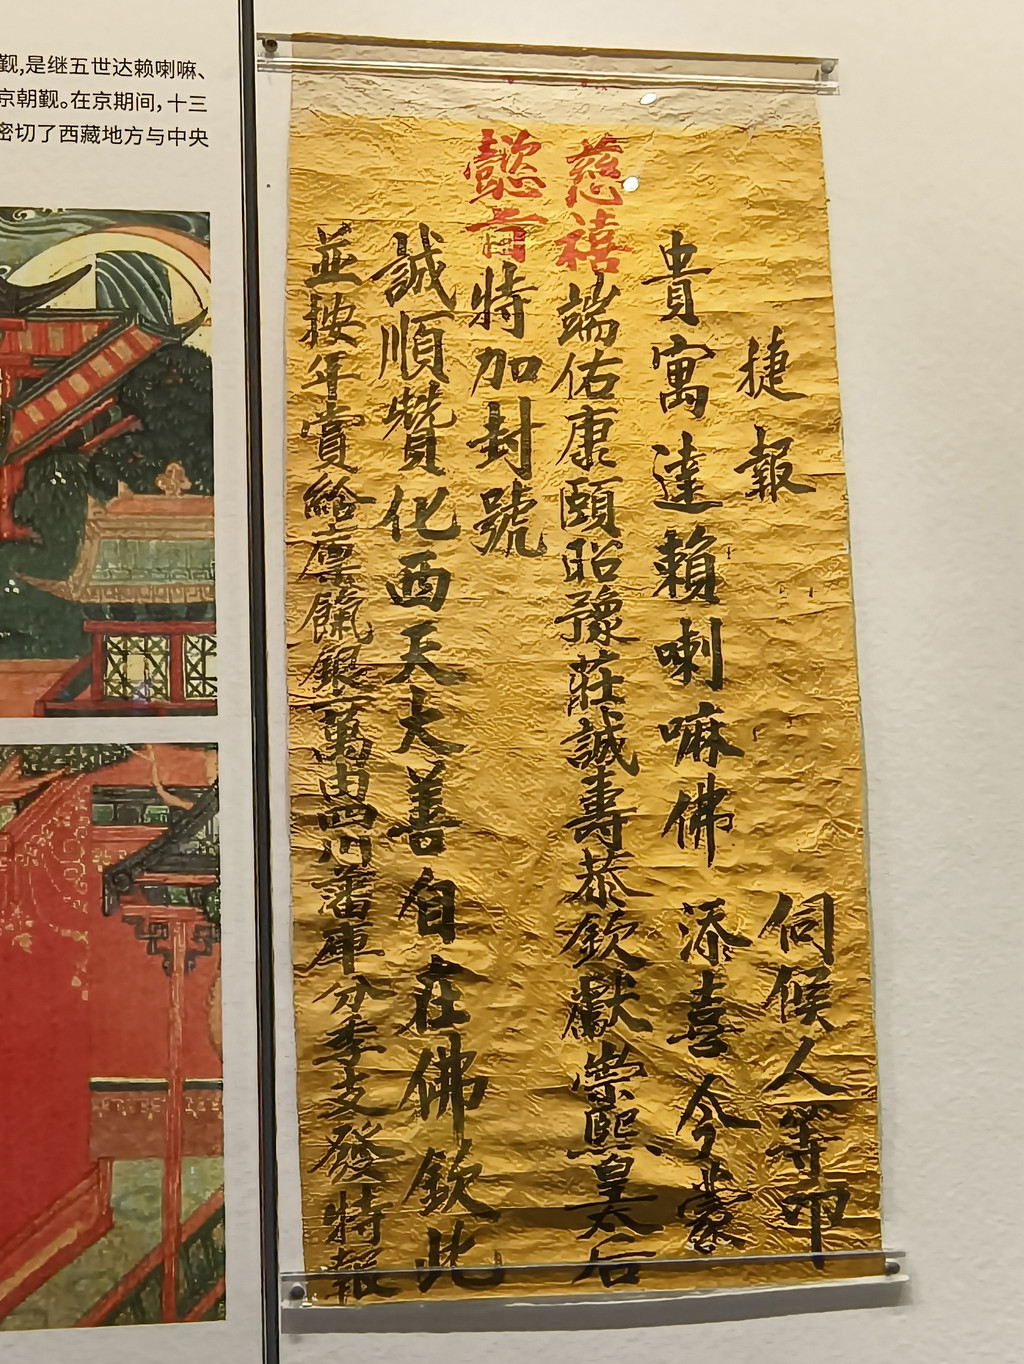 觐,是继五世达赖喇嘛、
京朝觐。在京期间,十三
密切了西藏地方与中央
捷報 伺候人等叩
貴寓達賴喇嘛佛 添喜今蒙
慈禧端佑康頤昭豫莊誠壽恭欽獻崇熙皇太后
懿旨特加封號
誠順贊化西天大善自在佛欽此
並按年賞給廪餼銀一萬由四川藩庫分季支發特報